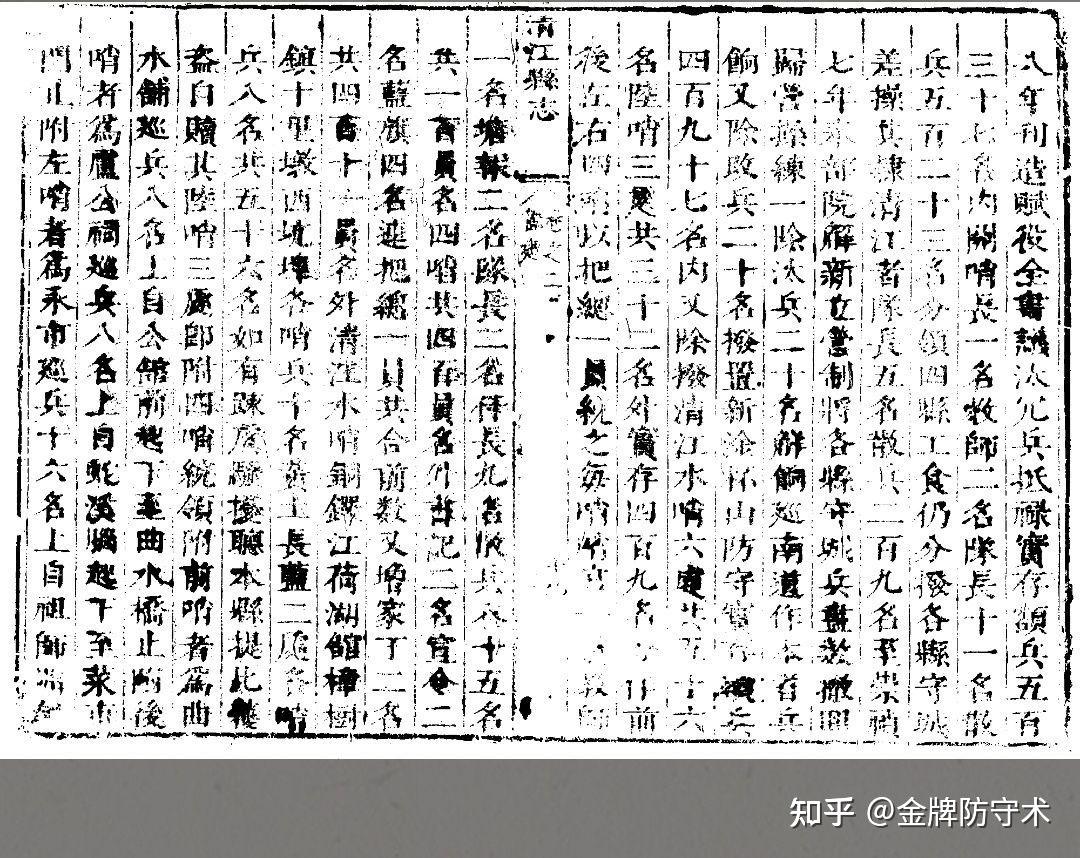 八年刊造賦役全書議汰冗兵抵祿實存額兵五百
三十七名內開哨長一名教師二名隊長十一名散
兵五百二十三名分領四縣工食仍分撥各縣守城
差操其隸清江者隊長五名散兵二百九名至崇禎
七年本部院解新立營制將各縣守城兵盡裁撤回
歸營操練一除汰兵二十名解餉巡南道作 者兵
餉又除改兵二十名撥置新淦杯山防守實 兵
四百九十七名內又除撥清江水哨六處共五十六
名陸哨三處共三十二名外實存四百九名 前
後左右四哨以把總一員統之每哨哨官 教師
清江縣志
卷之二
一名塘報二名隊長二名什長九名散兵八十五名
共一百員名四哨共四百員名外書記二名官令二
名藍旗四名連把總一員共合前數又增家丁二名
共四百十一員名外清江水哨銅鑼江荷湖館樟樹
鎮十里墩西坑埠各哨兵十名黃土長藍二處各哨
兵八名共五十六名如有疎虞騷擾聽本縣提比
盔自贖其陸哨三處即附四哨統領附前哨者爲曲
水舖巡兵八名上自公館前起下至曲水橋止附後
哨者爲盧公祠巡兵八名上自蛇溪腦起下至菜市
門止附左哨者爲永市巡兵十六名上自祖師
知乎 @金牌防守术